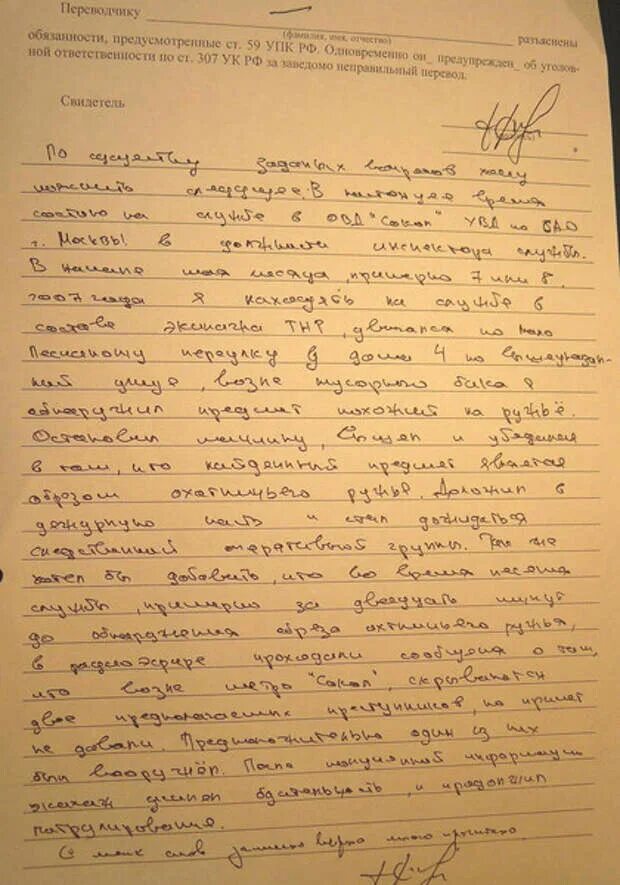 Переводчику
(фамилия, имя, отчество)
разъяснены
обязанности, предусмотренные ст. 59 УПК РФ. Одновременно он_ предупрежден_ об уголов-
ной ответственности по ст. 307 УК РФ за заведомо неправильный перевод.
Свидетель
По существу заданых вопросов хочу
пояснить следующее: В настоящее время
состою на службе в ОВД "Сокол" УВД по САО
г. Москвы в должности инспектора службы.
В начале мая месяца, примерно 7 или 8.
2007 года я находясь на службе в
составе экипажа двигался по Мало
Песчаному переулку у дома 4 по вышеуказан-
ной улице, возле мусорного бака я
обнаружил предмет похожий на ружьё.
Остановил машину, вышел и убедился
в том, что найденный предмет является
обрезом охотничьего ружья. Доложил в
дежурную часть и стал дожидаться
следственной оперативной группы. Так же
хотел бы добавить, что во время несения
службы, примерно за двадцать минут
до обнаружения обреза охтничьего ружья,
в радиоэфире проходали сообщения о том,
что возле метро "Сокол", скрываются
двое предполагаемых преступников, но примет
не давали. Предположительно один из них
был вооружён. После полученной информации
экипаж усилил бдительность, и продолжил
патрулирование.
С моих слов записано верно мною прочитано